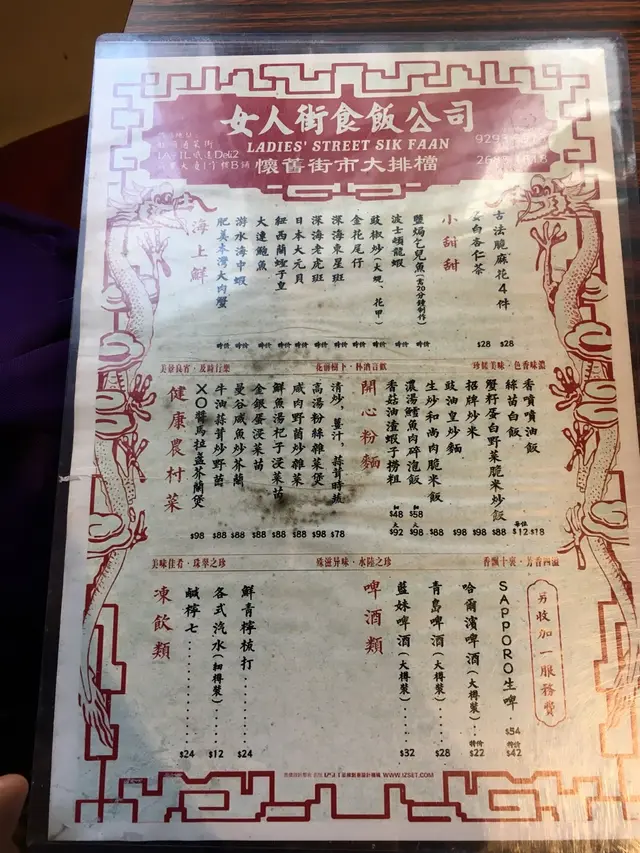 女人街食飯公司
LADIES' STREET SIK FAAN
懷舊街市大排檔
海上鮮
肥美未灣大肉蟹 時價
游水海中蝦 時價
大連鮑魚 時價
紐西蘭蟶子皇 時價
日本大元貝 時價
深海老虎班 時價
深海東星班 時價
金花尾仔 時價
豉椒炒(大蜆、花甲) 時價
波士頓龍蝦 時價
鹽焗乞兒魚(需20分鐘制作) 時價
小甜甜
蛋白杏仁茶 $28
古法脆麻花4件 $28
美景良宵·及時行樂
花前樹下·杯酒言歡
珍饈美味·色香味濃
健康農村菜
XO醬馬拉盞芥蘭煲 $98
牛油蒜茸炒野菌 $88
曼谷咸魚炒芥蘭 $88
金銀蛋浸菜苗 $88
鮮魚湯杞子浸菜苗 $88
咸肉野菌炒雜菜 $88
高湯粉絲雜菜煲 $98
清炒，薑汁，蒜茸時蔬 $78
開心粉麵
香菇油渣蝦子撈粗 $48 大$92
濃湯鱈魚肉碎泡飯 $58 大$98
生炒和尚肉脆米飯 $88
豉油皇炒麵 $98
招牌炒米 $98
蟹籽蛋白野菜脆米炒飯 $88
絲苗白飯 每位$12
香噴噴油飯 $18
美味佳肴·珠擊之珍
殊滋异味·水陸之珍
香飄十裏·芳香四溢
凍飲類
鹹檸七 $24
各式汽水(細樽裝) $12
鮮青檸梳打 $24
啤酒類
藍妹啤酒(大樽裝) $32
青島啤酒(大樽裝) $28
哈爾濱啤酒(大樽裝) 特價$22
SAPPORO生啤 $54 特價$42
另收加一服務費
WWW.IZSET.COM